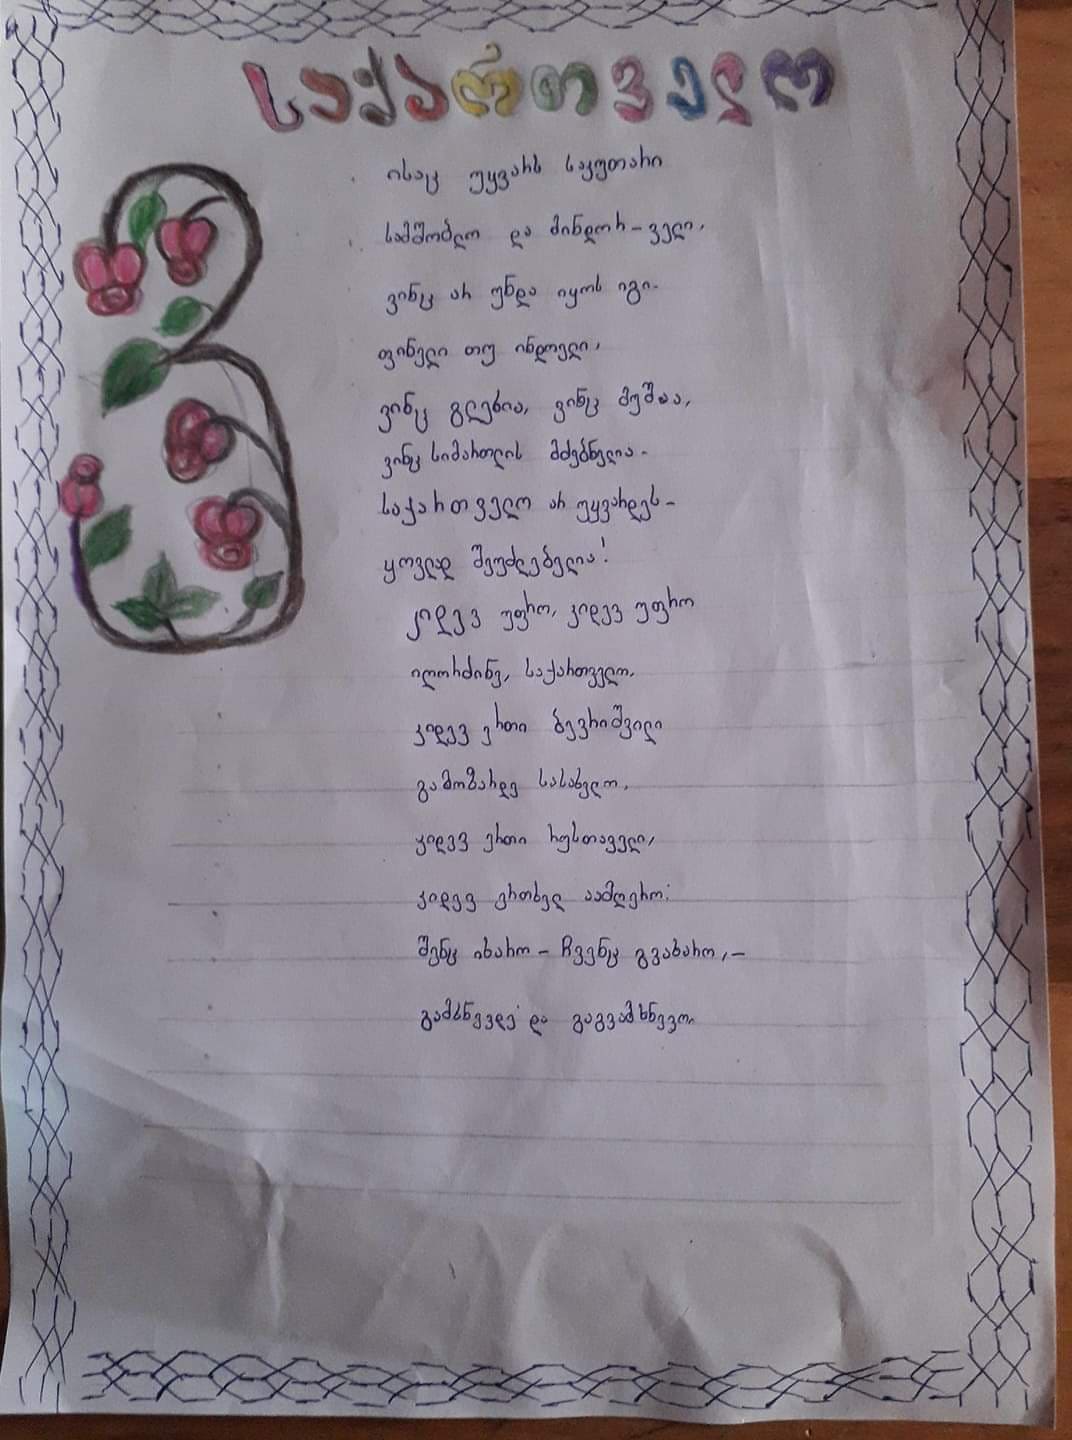 საქართველო
ვისაც უყვარს საკუთარი
სამშობლო და მინდორ-ველი,
ვინც არ უნდა იყოს იგი-
ფინელი თუ ინდოელი,
ვინც გლეხია, ვინც მუშაა,
ვინც სიმართლის მძებნელია-
საქართველო არ უყვარდეს-
ყოვლად შეუძლებელია!
კიდევ უფრო, კიდევ უფრო
იღორძინე, საქართველო,
კიდევ ერთი ბევრიშვილი
გამოზარდე სასახელო,
კიდევ ერთი რუსთაველი,
კიდევ ერთხელ აამღერო:
შენც იხარო - ჩვენც გვახარო,-
გამხნევდე და გაგვამხნევო.